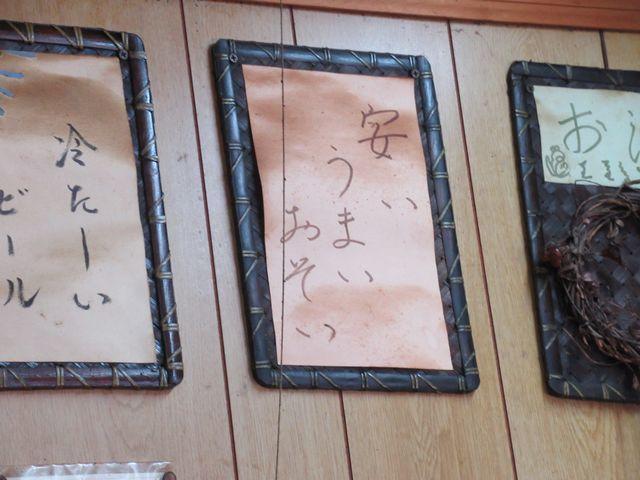 安い
うまい
おそい
冷たーい
ビール
お